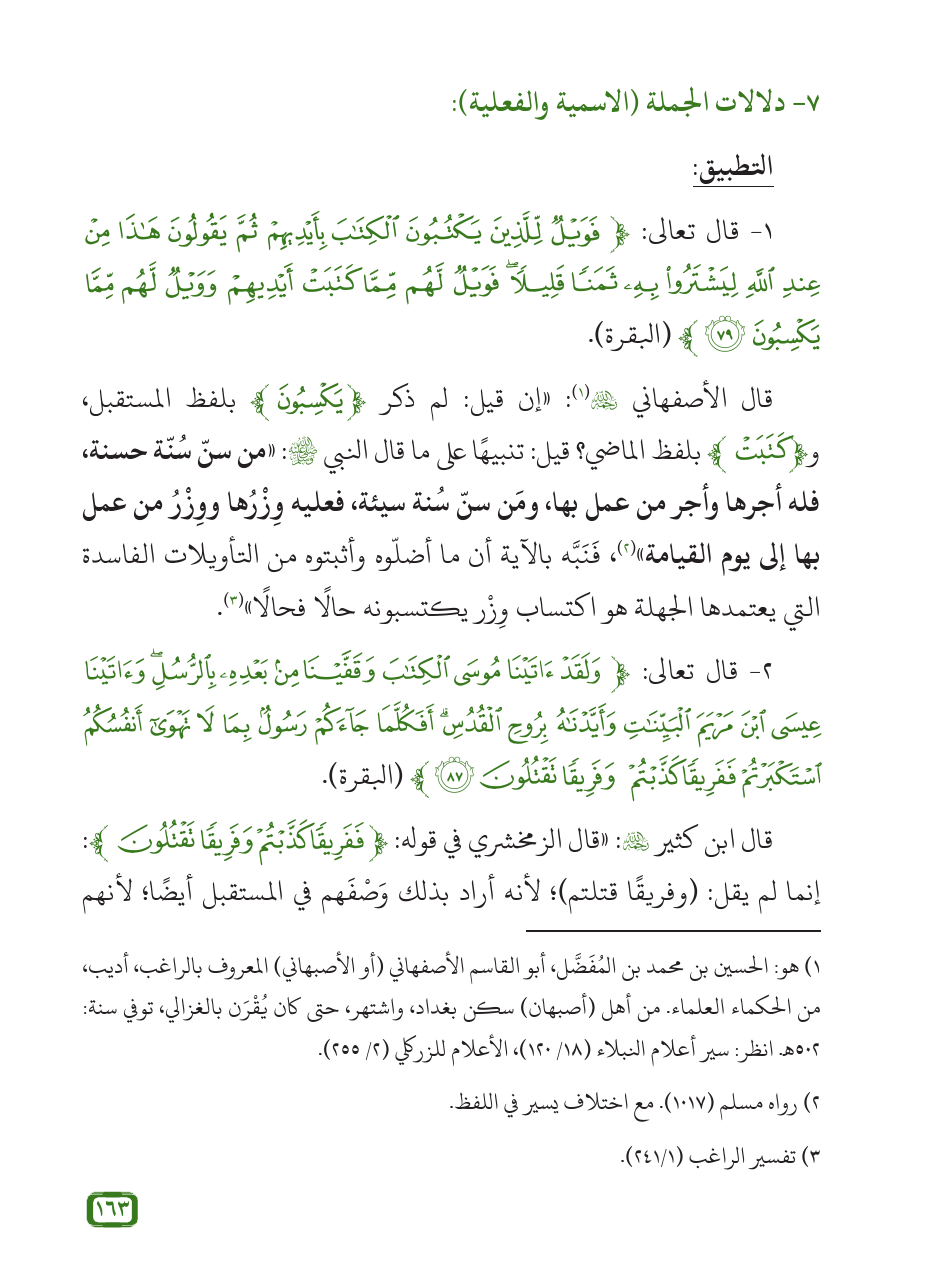 ٧- دلالات الجملة (الاسمية والفعلية):
التطبيق:
١- قال تعالى: ﴿ فَوَيْلٌ لِّلَّذِينَ يَكْتُبُونَ ٱلْكِتَٰبَ بِأَيْدِيهِمْ ثُمَّ يَقُولُونَ هَٰذَا مِنْ
عِندِ ٱللَّهِ لِيَشْتَرُوا۟ بِهِۦ ثَمَنًا قَلِيلًا ۖ فَوَيْلٌ لَّهُم مِّمَّا كَتَبَتْ أَيْدِيهِمْ وَوَيْلٌ لَّهُم مِّمَّا
يَكْسِبُونَ ٧٩ ﴾ (البقرة).
قال الأصفهاني ﵀(١): «إن قيل: لم ذكر ﴿يَكْسِبُونَ ﴾ بلفظ المستقبل،
و﴿كَتَبَتْ ﴾ بلفظ الماضي؟ قيل: تنبيهًا على ما قال النبي ﷺ: «من سنّ سُنّة حسنة،
فله أجرها وأجر من عمل بها، ومَن سنّ سُنة سيئة، فعليه وِزْرُها ووِزْرُ من عمل
بها إلى يوم القيامة»(٢)، فَنَبَّه بالآية أن ما أضلّوه وأثبتوه من التأويلات الفاسدة
التي يعتمدها الجهلة هو اكتساب وِزْر يكتسبونه حالًا فحالًا»(٣).
٢- قال تعالى: ﴿ وَلَقَدْ ءَاتَيْنَا مُوسَى ٱلْكِتَٰبَ وَقَفَّيْنَا مِنۢ بَعْدِهِۦ بِٱلرُّسُلِ ۖ وَءَاتَيْنَا
عِيسَى ٱبْنَ مَرْيَمَ ٱلْبَيِّنَٰتِ وَأَيَّدْنَٰهُ بِرُوحِ ٱلْقُدُسِ ۗ أَفَكُلَّمَا جَآءَكُمْ رَسُولٌۢ بِمَا لَا تَهْوَىٰٓ أَنفُسُكُمُ
ٱسْتَكْبَرْتُمْ فَفَرِيقًا كَذَّبْتُمْ وَفَرِيقًا تَقْتُلُونَ ٨٧ ﴾ (البقرة).
قال ابن كثير ﵀: «قال الزمخشري في قوله: ﴿ فَفَرِيقًا كَذَّبْتُمْ وَفَرِيقًا تَقْتُلُونَ ﴾:
إنما لم يقل: (وفريقًا قتلتم)؛ لأنه أراد بذلك وَصْفَهم في المستقبل أيضًا؛ لأنهم
١) هو: الحسين بن محمد بن المُفَضَّل، أبو القاسم الأصفهاني (أو الأصبهاني) المعروف بالراغب، أديب،
من الحكماء العلماء. من أهل (أصبهان) سكن بغداد، واشتهر، حتى كان يُقْرَن بالغزالي، توفي سنة:
٥٠٢هـ. انظر: سير أعلام النبلاء (١٨/ ١٢٠)، الأعلام للزركلي (٢/ ٢٥٥).
٢) رواه مسلم (١٠١٧). مع اختلاف يسير في اللفظ.
٣) تفسير الراغب (٢٤١/١).
١٦٣